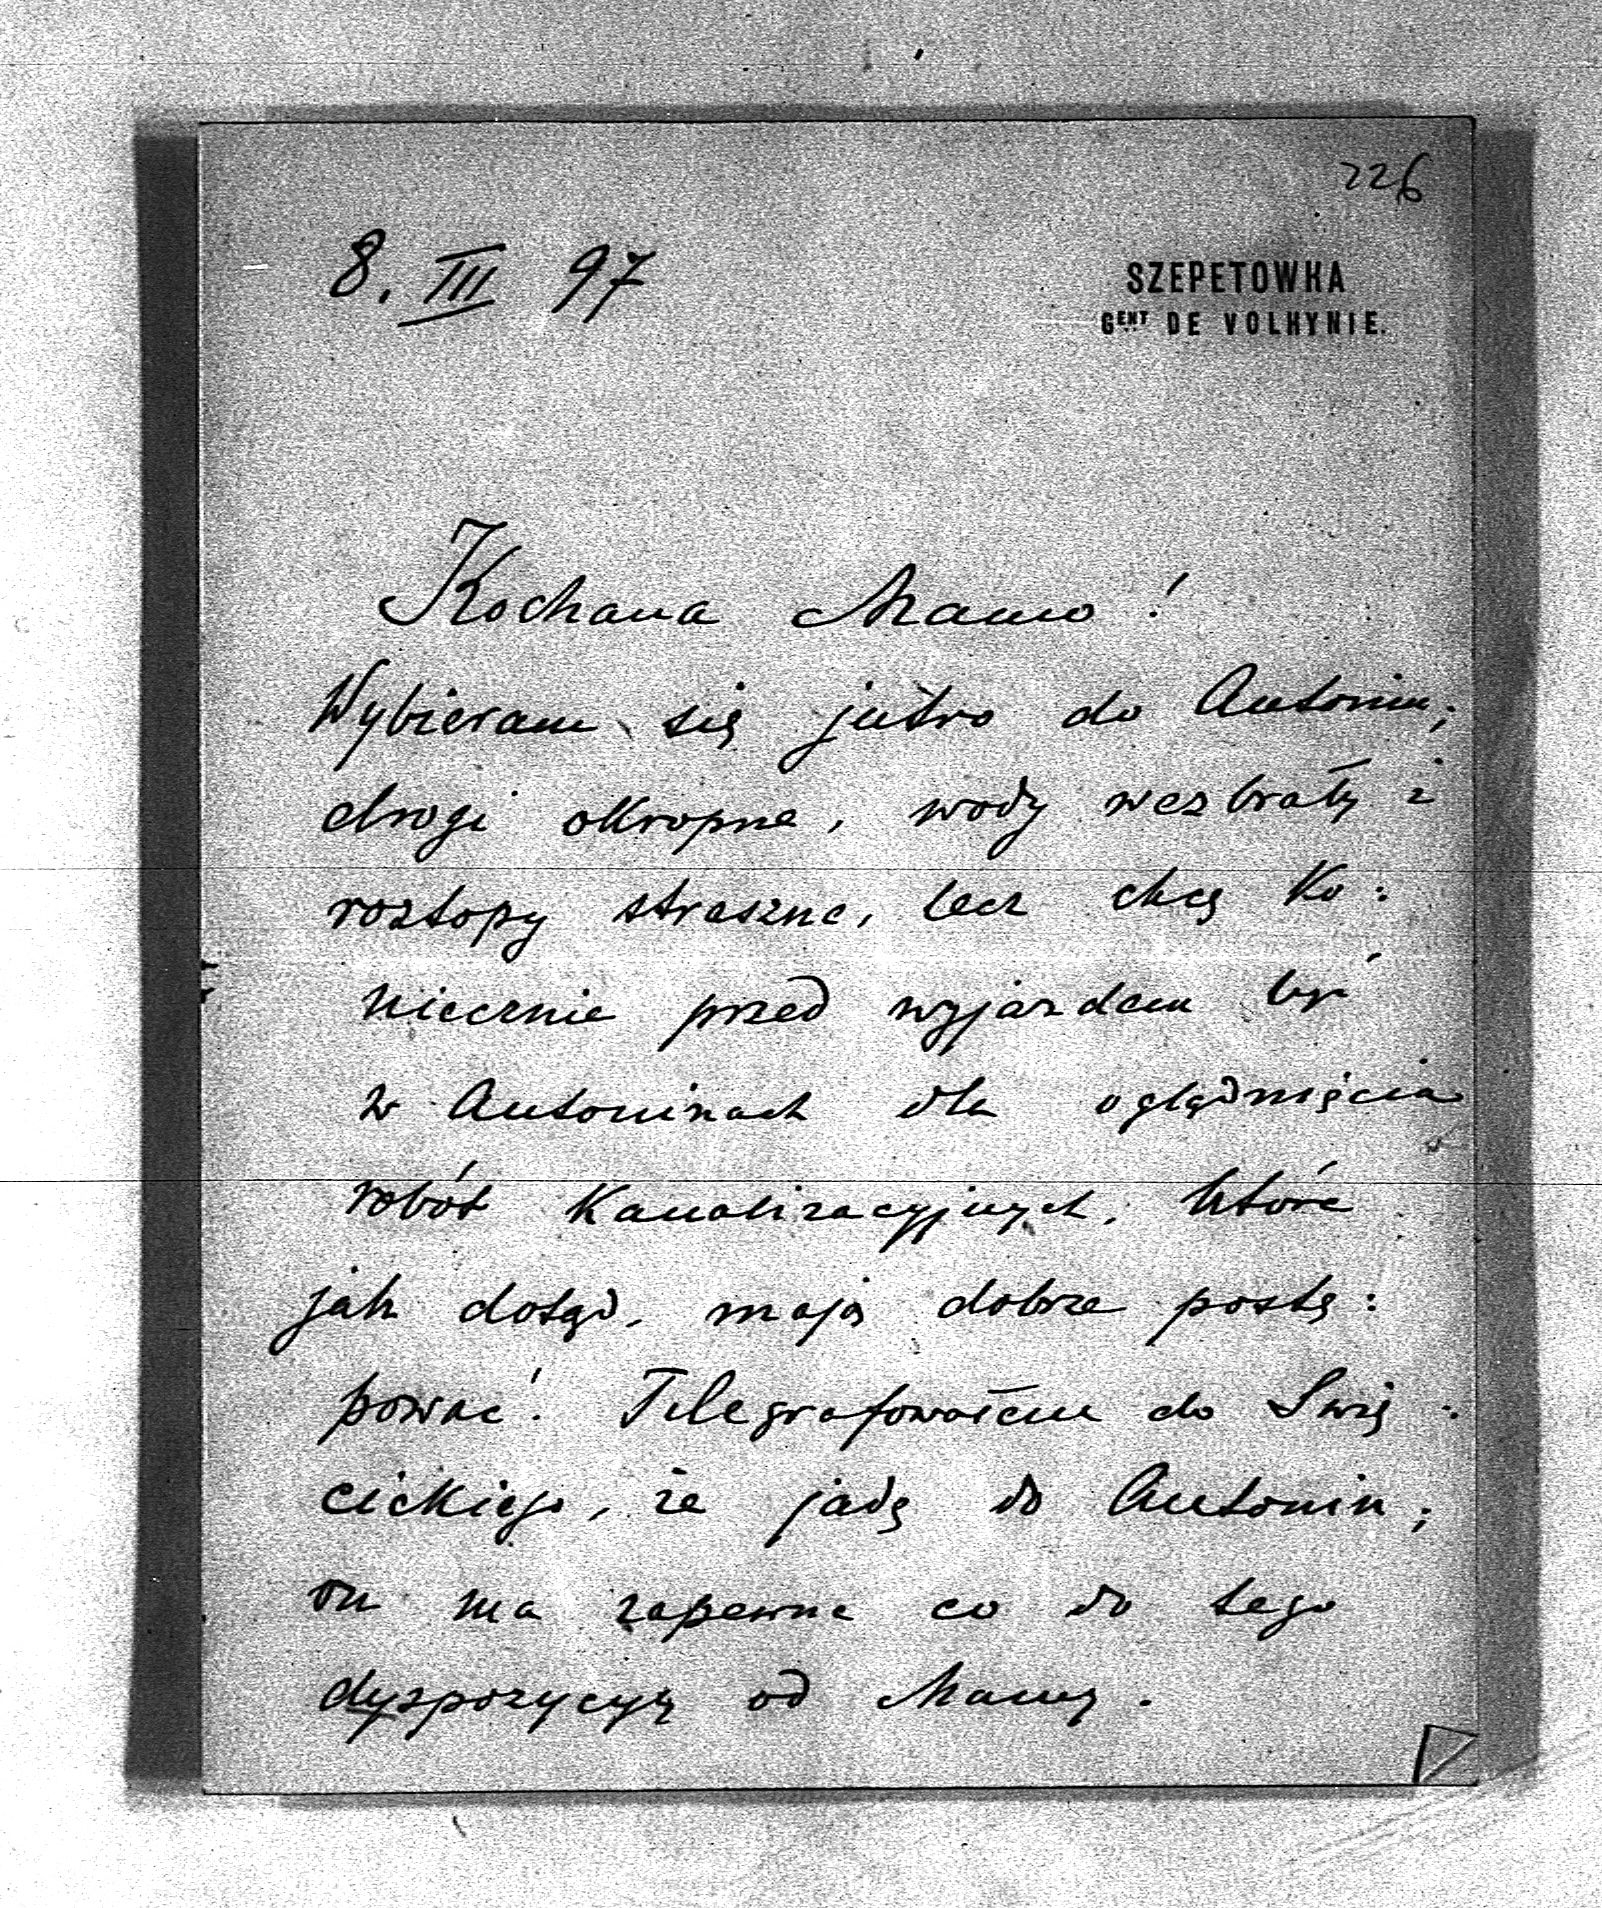 226
8. III 97
SZEPETOWKA
GENT DE VOLHYNIE.
Kochana Mamo!
Wybieram się jutro do Antonin;
drogi okropne, wody wezbrały i
roztopy straszne, lecz chcę ko:
niecznie przed wyjazdem być
w Antoninach dla oglądnięcia
robót kanalizacyjnych, które
jak dotąd, mają dobrze postę:
pować. Telegrafowałem do Swię:
cickiego, że jadę do Antonin;
on ma zapewne co do tego
dyspozycyę od Mamy.